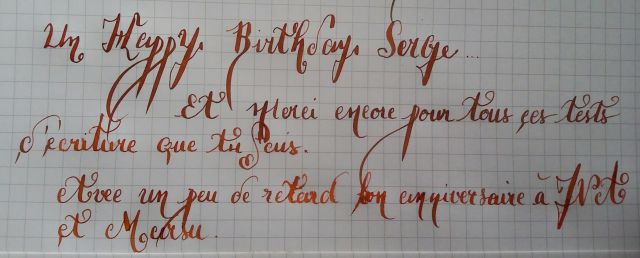 Un Happy Birthday Serge...
Et Merci encore pour tous ces tests
d'écriture que tu fais.
Avec un peu de retard bon anniversaire à
et